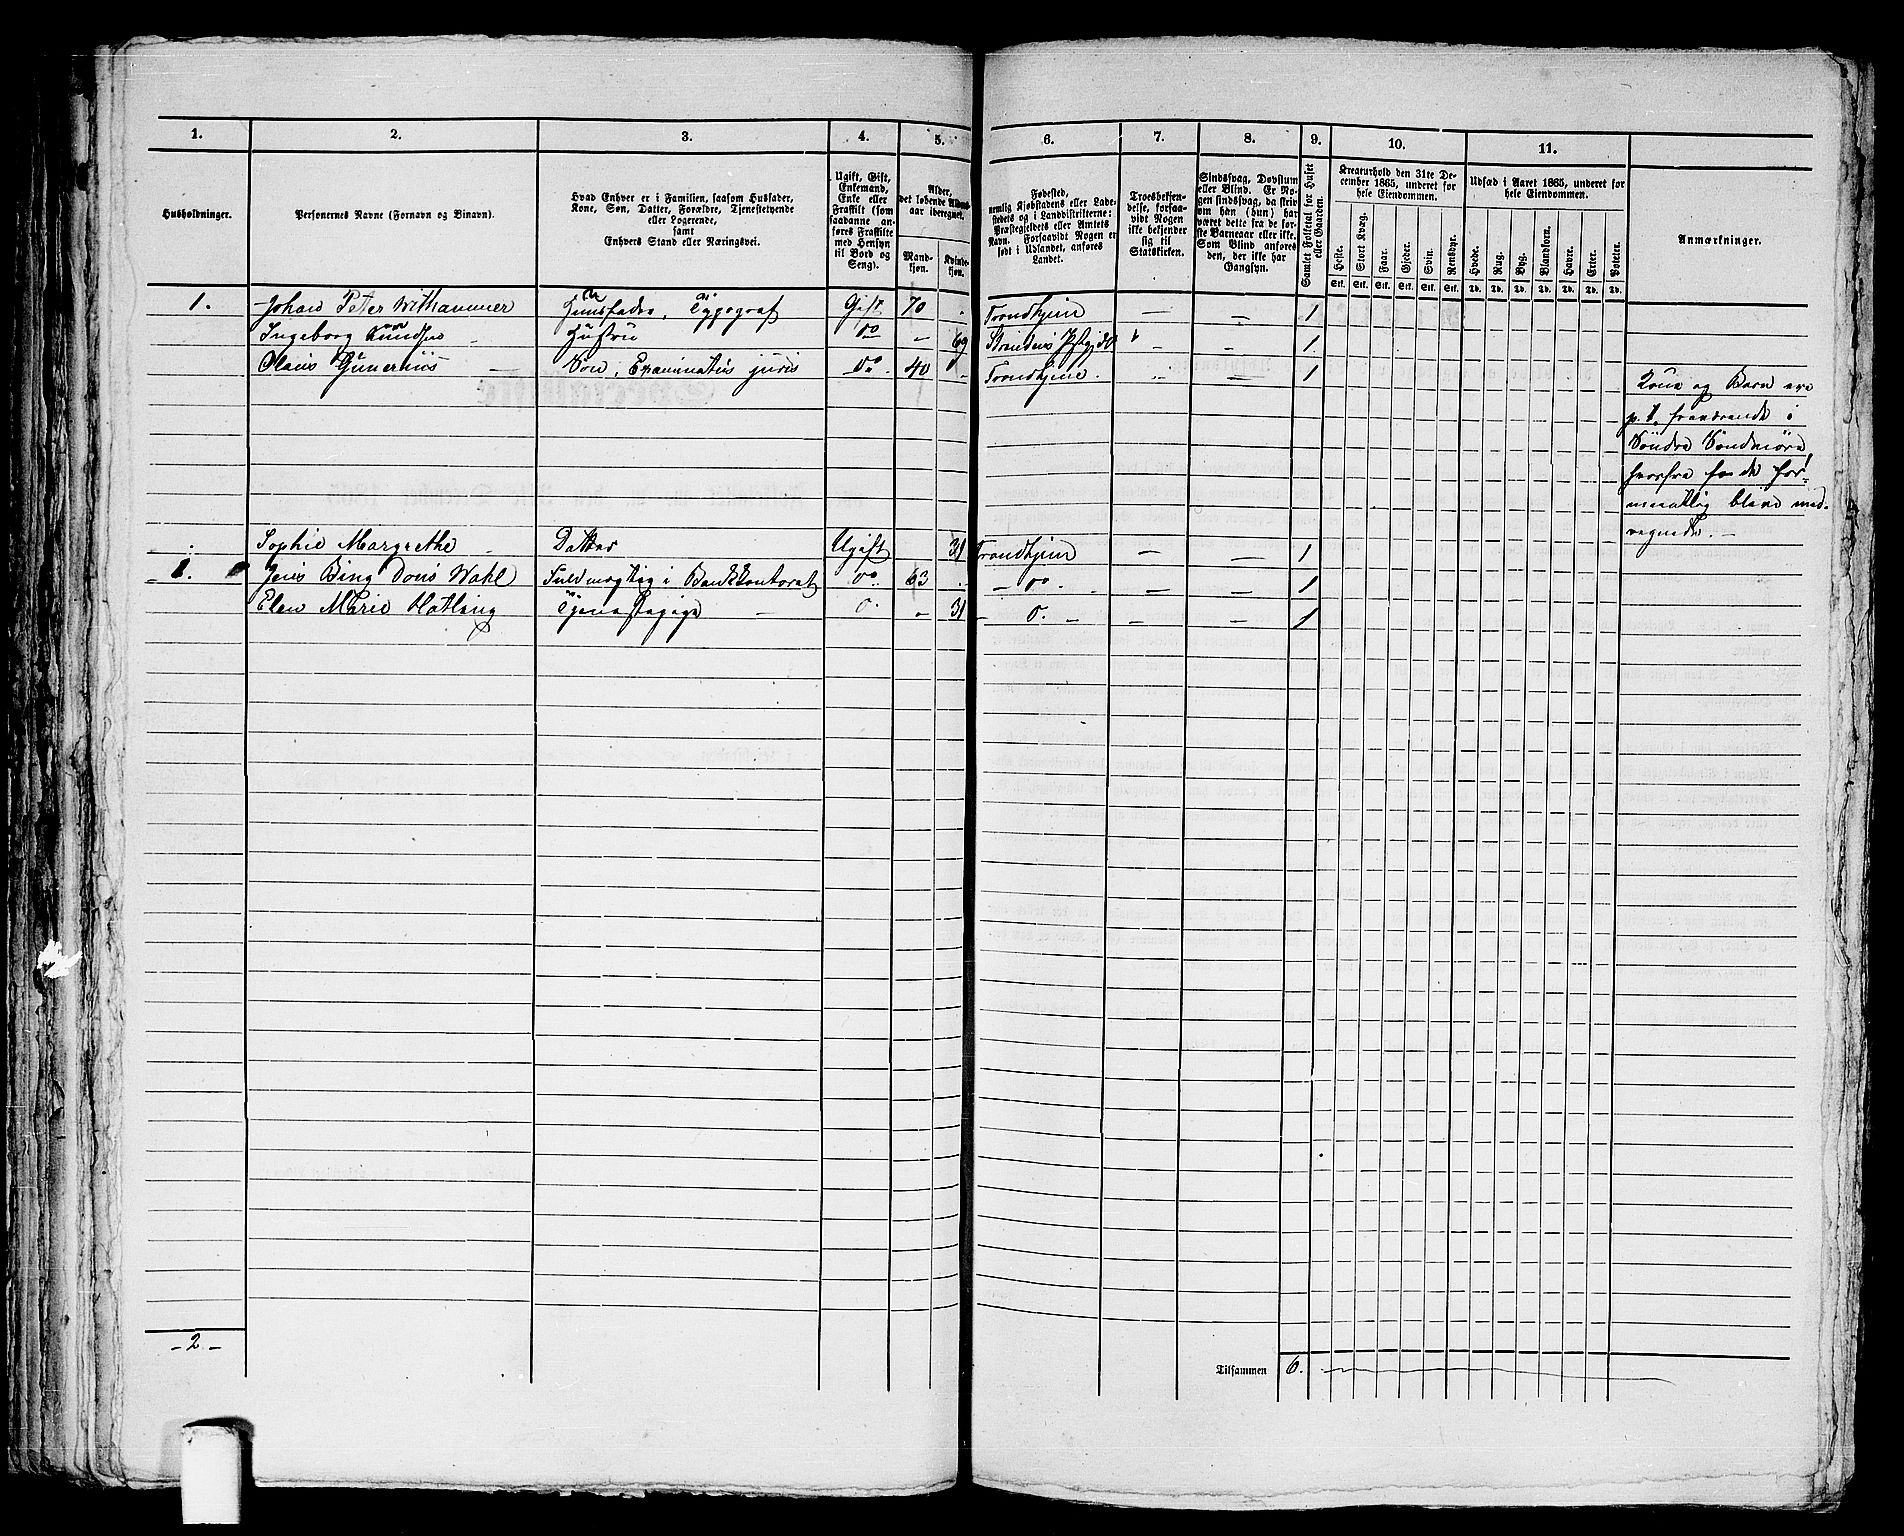 1. 2. 3. 4. 5. 6. 7. 8. 9. 10. 11.
Husholdninger.
Personernes Navne (Fornavn og Binavn).
Hvad Enhver er i Familien, saasom Husfader,
Kone, Søn, Datter, Forældre, Tjenestetyende
eller Logerende,
samt
Enhvers Stand eller Næringsvei.
Ugift, Gift,
Enkemand,
Enke eller
Fraskilt (som
saadanne an-
føres Fraskilte
med Hensyn
til Bord og
Seng).
Alder,
det løbende Alders-
aar iberegnet.
Mand-
kjøn.
Kvinde-
kjøn.
Fødested,
nemlig Kjøbstadens eller Lade-
stedets og i Landdistrikterne:
Præstegjeldets eller Amtets
Navn. Forsaavidt Nogen er
født i Udlandet, anføres
Landet.
Troesbekjen-
delse, forsaa-
vidt Nogen
ikke bekjender
sig til
Statskirken.
Sindssvag, Døvstum
eller Blind. Er No-
gen sindssvag, da skriv
om han (hun) har
været dette fra de før-
ste Barneaar eller ikke.
Som Blind anføres
den, der ikke har
Gangsyn.
Samlet Folketal for Huset
eller Gaarden.
Kreaturhold den 31te De-
cember 1865, underet for
hele Eiendommen.
Heste. Stort Kvæg. Faar. Gjeder. Svin. Rensdyr.
Stk. Stk. Stk. Stk. Stk. Stk.
Udsæd i Aaret 1865, underet for
hele Eiendommen.
Hvede. Rug. Byg. Blandkorn. Havre. Erter. Poteter.
Td. Td. Td. Td. Td. Td. Td.
Anmærkninger.
1. Johan Peter Withammer Huusfader, Typograf Gift 70 Trondhjem — — 1
Ingeborg Hustru do — 69 Strindens — — 1
Olaus Gunerius Søn, Examinatus juris do 40 Trondhjem. — 1
Kone og Barn ere
p. t. fraværende i
Söndre Söndmöre
hvorfra de for-
mentlig blive med-
regnede. —
Sophie Margrethe Datter Ugift 31 Trondhjem — — 1
1. Jens Bing Dons Wahl Fuldmægtig i Bankkontoret do 63 — do — — 1
Elen Marie Hatling Tjenestepige — 31 — — — 1
- 2. -
Tilsammen 6.